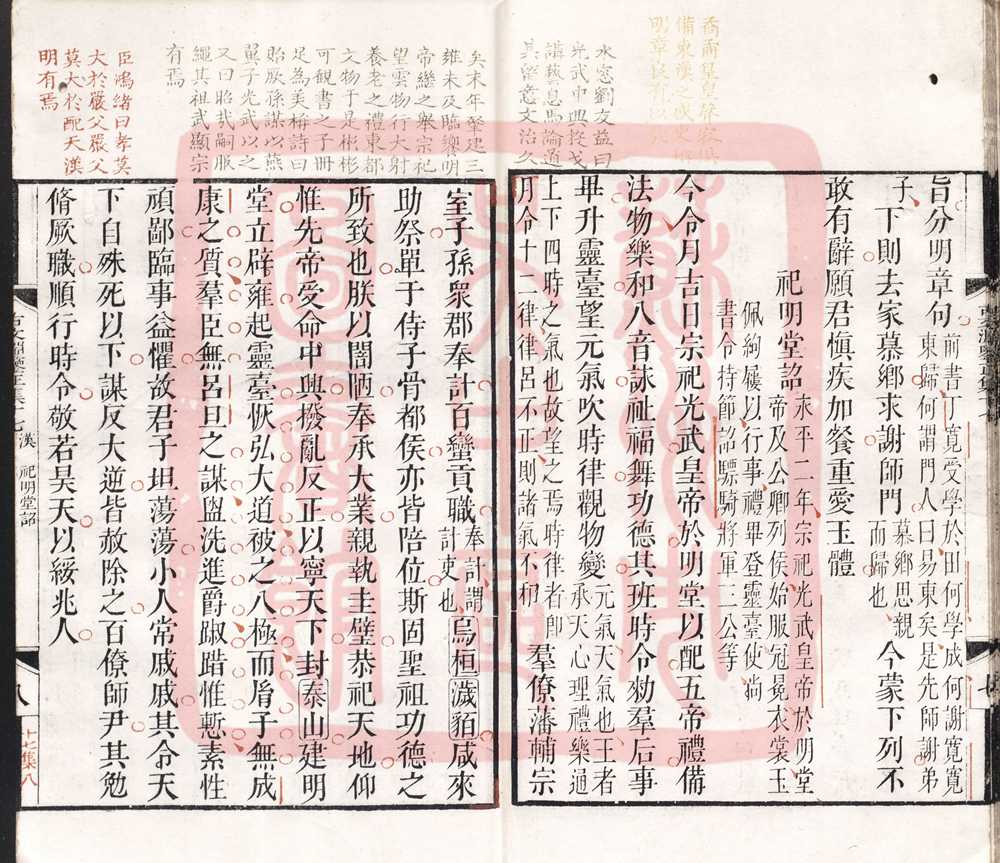 備東漢之盛史
明章良有以
水窻劉友益曰
光武中興投戈
講藝息馬論道
其留意文治久
旨分明章句前書丁寬受學於田何學成何謝寬寬
東歸何謂門人曰易東矣是先師謝弟
子下則去家慕鄉求謝師門慕鄉思親
而歸也今蒙下列不
敢有辭願君慎疾加餐重愛玉體
祀明堂詔永平二年宗祀光武皇帝於明堂
帝及公卿列侯始服冠冕衣裳玉
佩絇屨以行事禮畢登靈臺使尚
書令持節詔驃騎將軍三公等
今令月吉日宗祀光武皇帝於明堂以配五帝禮備
法物樂和八音詠祉福舞功德其班時令勑羣后事
畢升靈臺望元氣吹時律觀物變元氣天氣也王者
承天心理禮樂通
上下四時之氣也故望之焉時律者即
月令十二律律呂不正則諸氣不和羣僚藩輔宗
矣末年肇建三
雍未及臨饗明
帝繼之舉宗祀
望雲物行大射
養老之禮東都
文物于是彬彬
可觀書之于冊
足為美梅詩曰
貽厥孫謀以燕
翼子光武以之
又曰昭哉嗣服
繩其祖武顯宗
有焉
臣鴻緒曰孝莫
大於嚴父嚴父
莫大於配天漢
明有焉
室子孫衆郡奉計百蠻貢職奉計謂
計吏也烏桓濊貊咸來
助祭單于侍子骨都侯亦皆陪位斯固聖祖功德之
所致也朕以闇陋奉承大業親執圭璧恭祀天地仰
惟先帝受命中興撥亂反正以寧天下封泰山建明
堂立辟雍起靈臺恢弘大道被之八極而胤子無成
康之質羣臣無呂旦之謀盥洗進爵踧踖惟慙素性
頑鄙臨事益懼故君子坦蕩蕩小人常戚戚其令天
下自殊死以下謀反大逆皆赦除之百僚師尹其勉
脩厥職順行時令敬若昊天以綏兆人
漢 祀明堂詔
八
十七集八